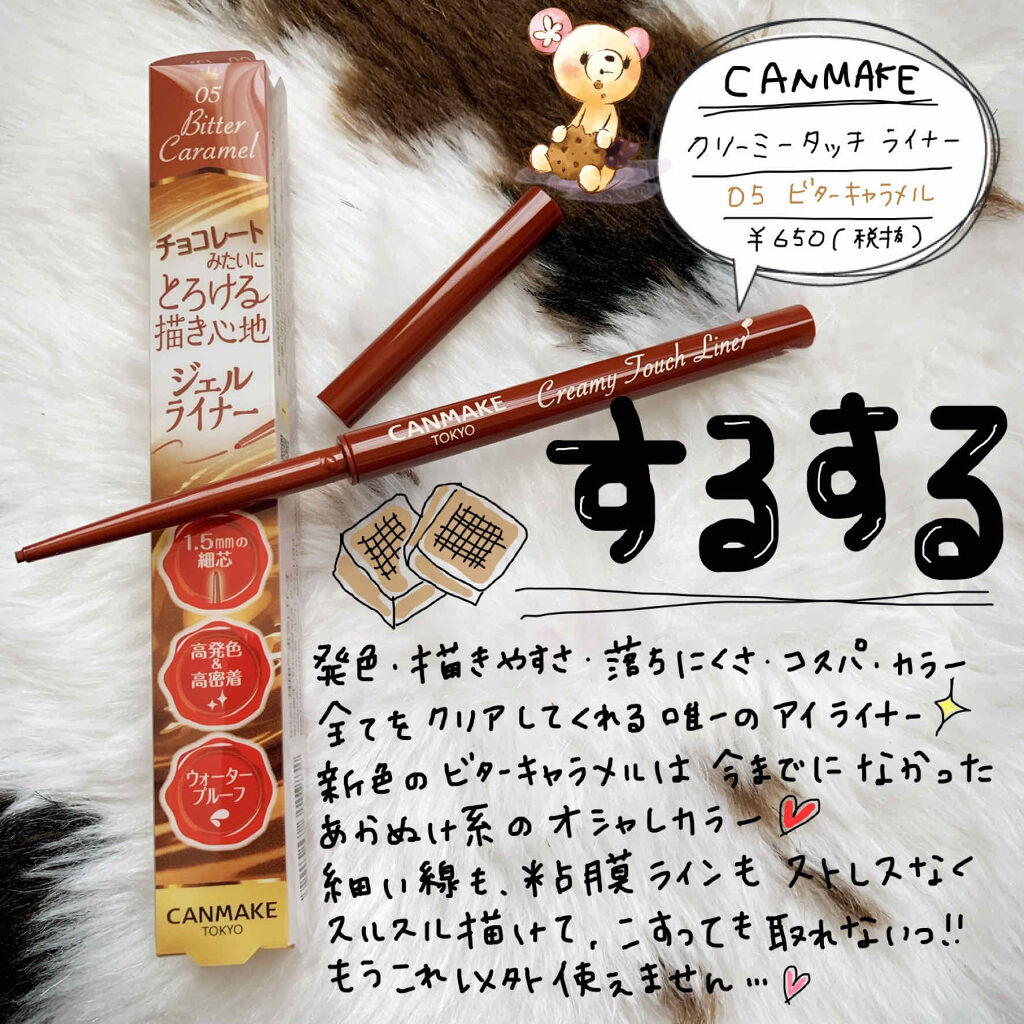 05
Bitter
Caramel
チョコレート
みたいに
とろける
描き心地
ジェル
ライナー
1.5mmの
細芯
高発色
&
高密着
ウォーター
プルーフ
CANMAKE
TOKYO
CANMAKE
TOKYO
Creamy Touch Liner
CANMAKE
クリーミータッチライナー
05 ビターキャラメル
¥650(税抜)
するする
発色・描きやすさ・落ちにくさ・コスパ・カラー
全てをクリアしてくれる唯一のアイライナー
新色のビターキャラメルは今までになかった
あかぬけ系のオシャレカラー
細い線も、粘膜ラインもストレスなく
スルスル描けて、こすっても取れないっ!!
もうこれ以外使えません…